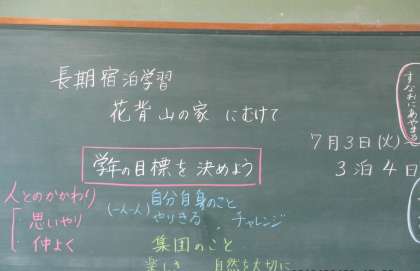 長期宿泊学習
花背山の家 にむけて
すなおにあやまる
7月3日(火)~
3泊4日
学年の目標を決めよう
人とのかかわり
思いやり
仲よく
(一人一人)
自分自身のこと
やりきる、チャレンジ
集団のこと
楽しさ 自然を大切に